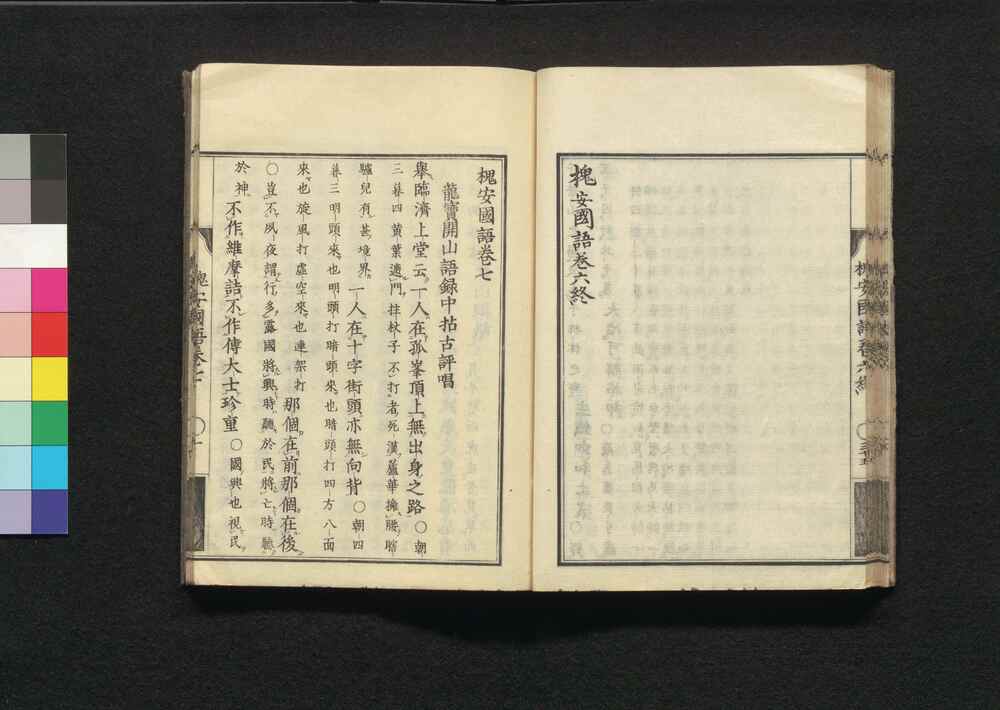 槐安國語卷六終
槐安國語卷七
龍寶開山語録中拈古評唱
舉臨濟上堂云一人在孤峯頂上無出身之路〇朝
三暮四黄葉遶門拄杖子不打者死漢蘆華擁腰瞎
驢兒有甚境界一人在十字街頭亦無向背〇朝四
暮三明頭來也明頭打暗頭來也暗頭打四方八面
來也旋風打虚空來也連架打那個在前那個在後
〇豈不夙夜謂行多露國將興時聽於民將亡時聽
於神不作維摩詰不作傅大士珍重〇國興也視民
槐安國語卷六終
槐安國語卷七